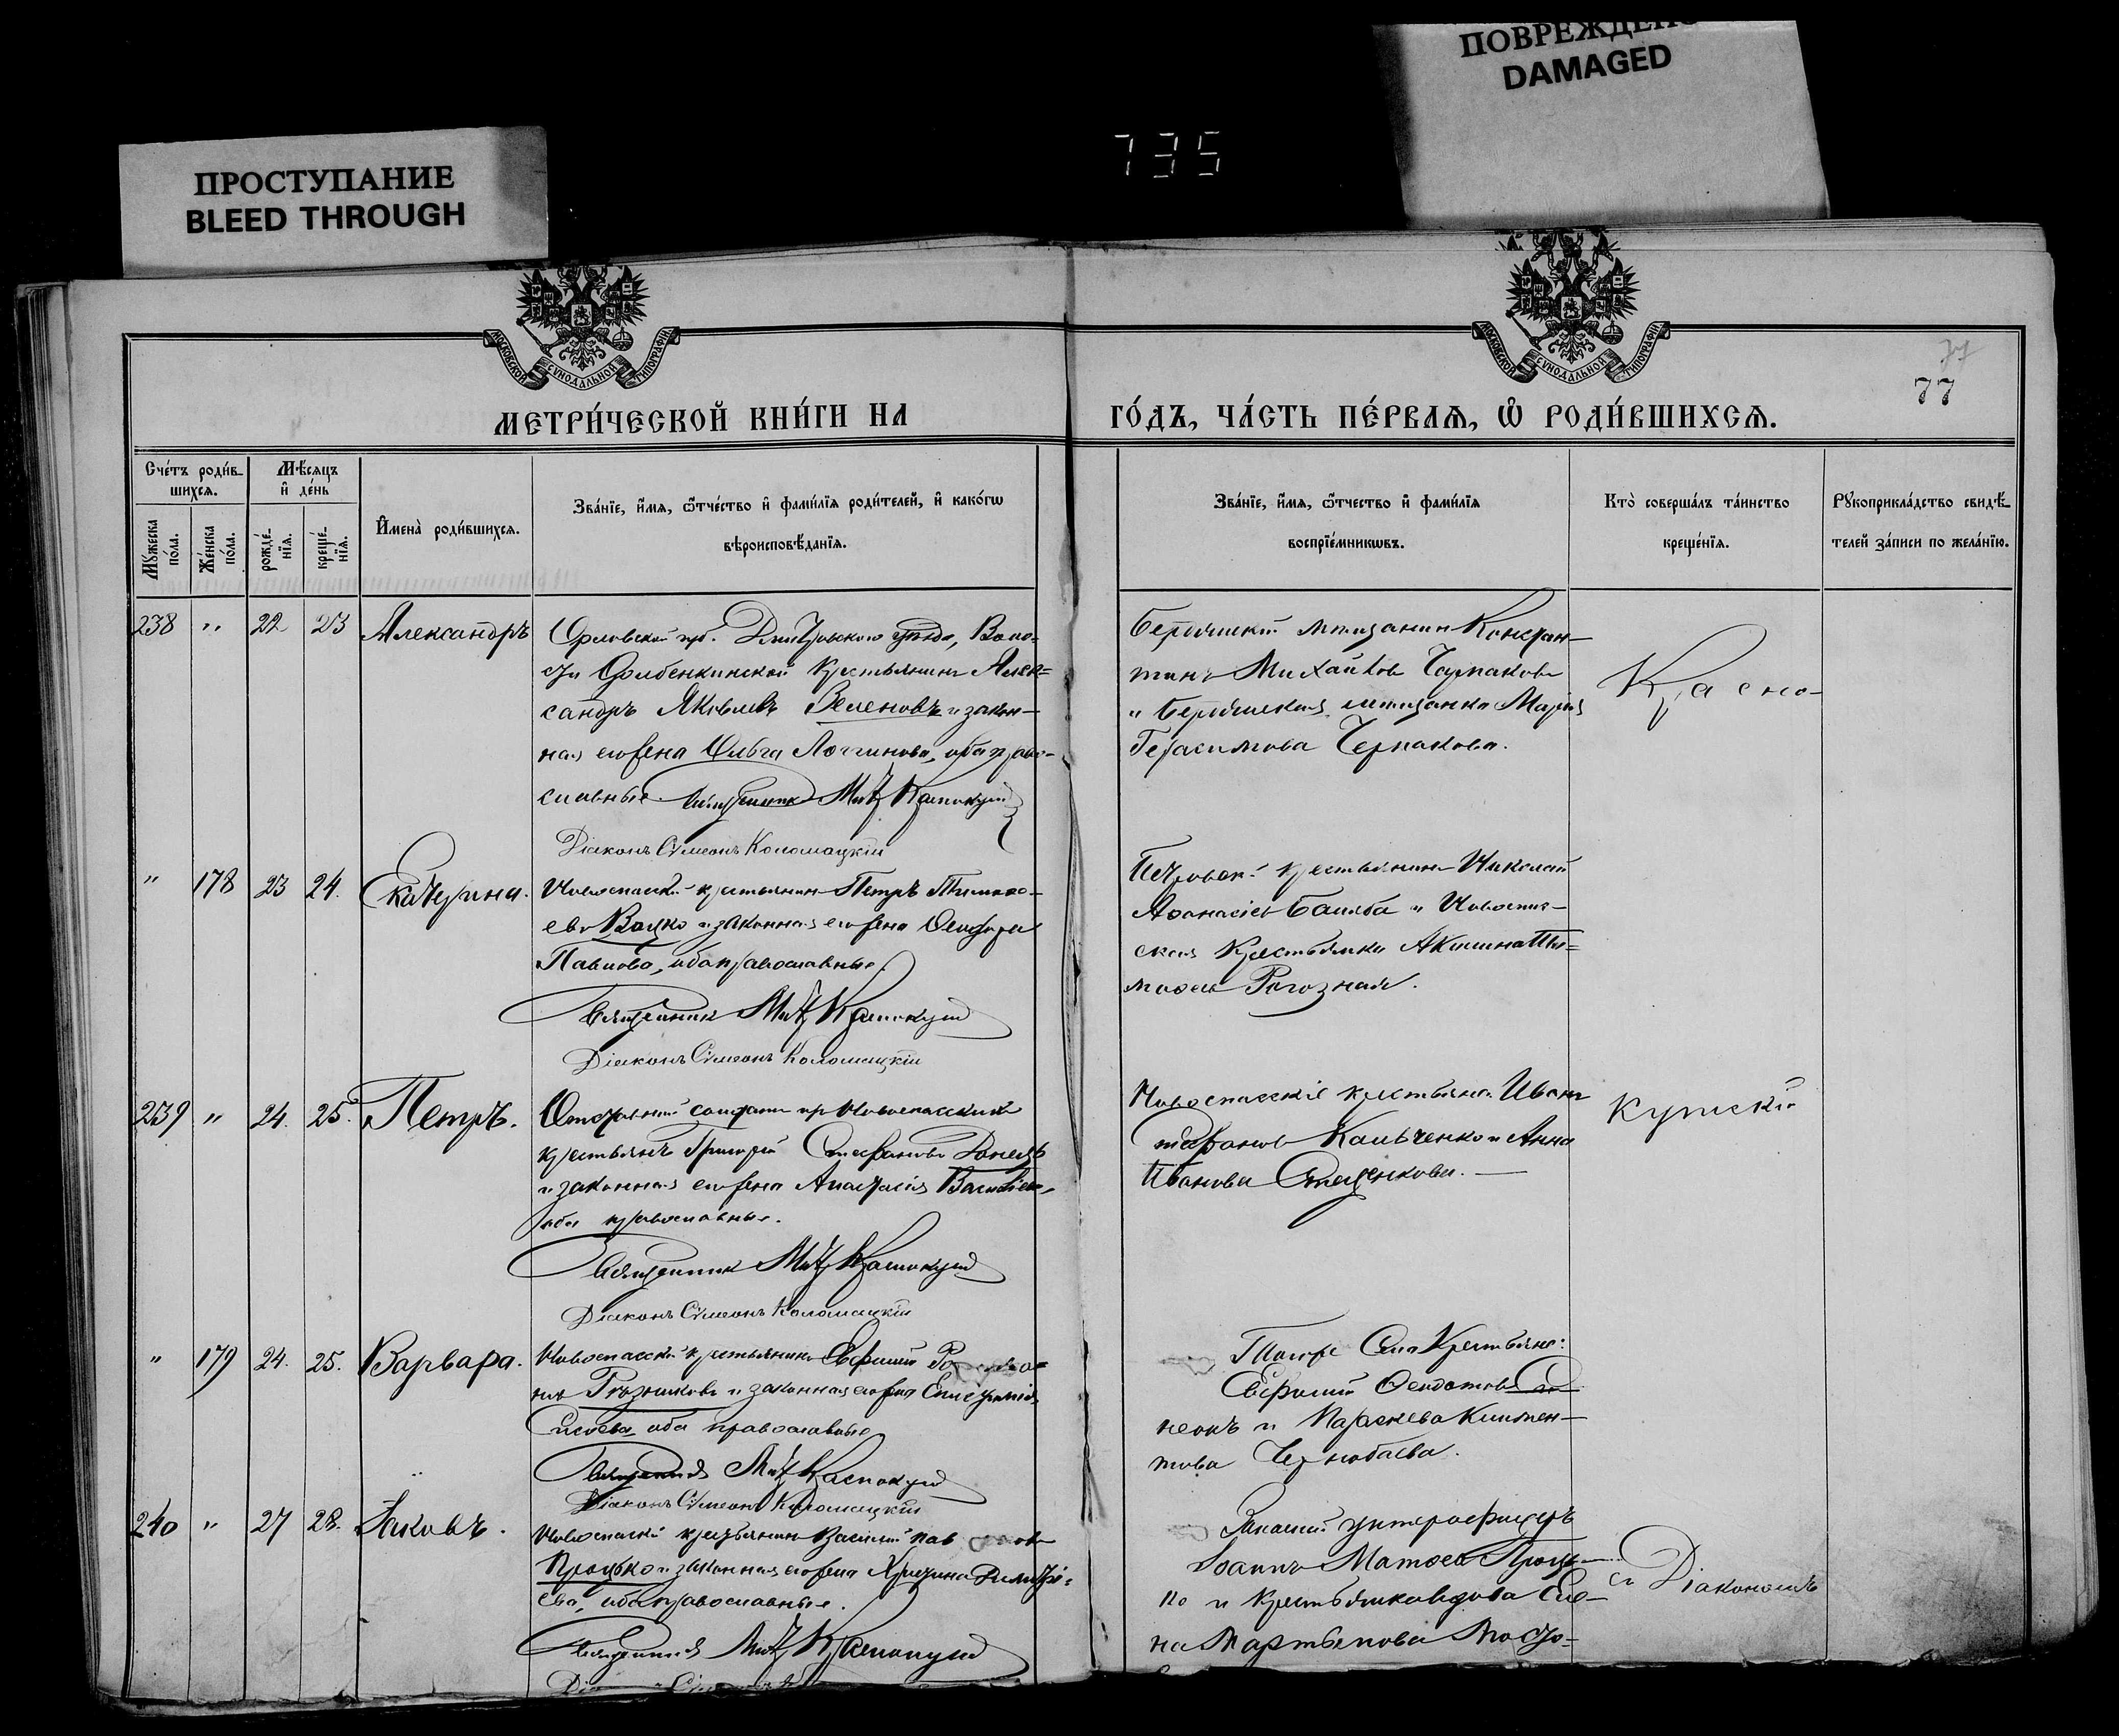 ПОВРЕЖДЕНО
DAMAGED
735
ПРОСТУПАНИЕ
BLEED THROUGH
МОСКОВСКОЙ СѴНОДАЛЬНОЙ ТИПОГРАФІИ
МОСКОВСКОЙ СѴНОДАЛЬНОЙ ТИПОГРАФІИ
77
77
МЕТРИ́ЧЕСКОЙ КНИ́ГИ НА
ГО́ДЪ, ЧА́СТЬ ПЕ́РВАѦ, Ѽ РОДИ́ВШИХСѦ.
Сче́тъ роди́в-
шихсѧ.
Мѣ́сѧцъ
и҆ де́нь
Мꙋжеска
по́ла.
Же́нска
по́ла.
рожде́-
нїѧ.
креще́-
нїѧ.
И҆мена̀ роди́вшихсѧ.
Зва́нїе, и҆́мѧ, ѻ҆́тчество и҆ фами́лїѧ роди́телей, и҆ како́гѡ
вѣроисповѣ́данїѧ.
Зва́нїе, и҆́мѧ, ѻ҆́тчество и҆ фами́лїѧ
воспрїе́мникѡвъ.
Кто̀ соверша́лъ та́инство
креще́нїѧ.
Рꙋкоприкла́дство свидѣ́-
телей за́писи по жела́нїю.
238 " 22 23 Александръ
Орловской губ. Дмитровскаго уѣзда, Воло-
сти Столбенкинской крестьянинъ Алек-
сандръ Яковлевъ Зеленовъ и закон-
ная его жена Ольга Логгинова, оба право-
славные. Священник Мит. Краснокут
Діаконъ Сѵмеонъ Коломацкій
Бердянскій мѣщанинъ Констан-
тинъ Михайлов Черпаковъ
и Бердянская мѣщанка Марія
Герасимова Черпакова.
Красно-
" 178 23 24. Екатерина.
Новоспасскій крестьянинъ Петръ Тимофе-
евъ Вацко и законная его жена Феодора
Павлова, оба православные.
Священник Мит. Краснокут
Діаконъ Сѵмеонъ Коломацкій
Петровскій крестьянинъ Николай
Афанасіев и Новоспас-
ская крестьянка Акилина Ти-
мофеева Рогозная.
239 " 24. 25. Петръ.
Отставной солдатъ из Новоспасскихъ
крестьянъ Григорій Стефановъ Донецъ
и законная его жена Анастасія Васильева,
оба православные.
Священник Мит. Краснокут
Діаконъ Сѵмеонъ Коломацкій
Новоспасскіе крестьяне Иванъ
Кальченко и Анна
Иванова Стаценкова.
кутскій
" 179 24. 25. Варвара.
Новоспасскій крестьянинъ Евфимій
Рѣзниковъ и законная его жена
Сисоева, оба православные
Священник Мит. Краснокут
Діаконъ Сѵмеонъ Коломацкій
Того же Села Крестьяне:
Евфимій Феодотовъ До-
нецъ и Параскева Климен-
това Чернобаева.
240 " 27 28. Іаковъ.
Новоспасскій крестьянинъ Василій
Процько и законная его жена Христина Димитрі-
ева, оба православные.
Священник Мит. Краснокут
Запасный унтерофицеръ
Іоаннъ Матфеевъ Проць-
ко и крестьянка вдова Еле-
на Мартынова
съ Діакономъ